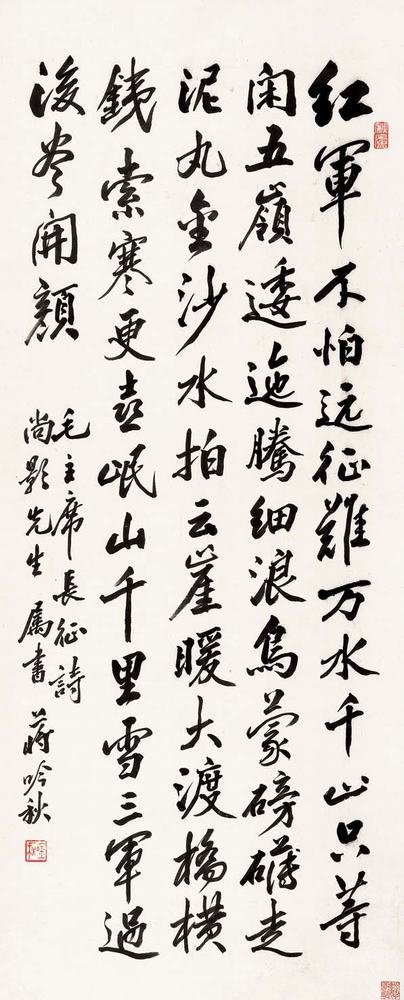 红軍不怕远征難万水千山只等
闲五嶺逶迤騰细浪烏蒙磅礴走
泥丸金沙水拍云崖暖大渡橋横
鉄索寒更喜岷山千里雪三軍過
後尽開顔
毛主席長征詩
尚影先生属書 蒋吟秋